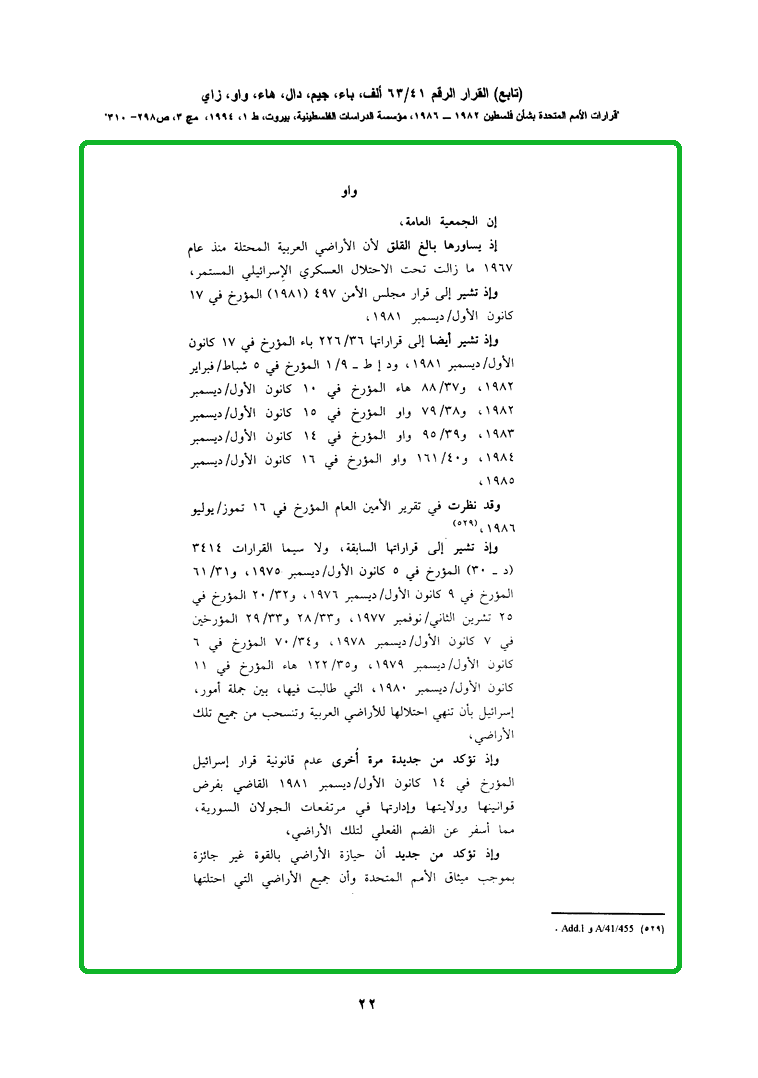 (تابع) القرار الرقم ٦٣/٤١ ألف، باء، جيم، دال، هاء، واو، زاي
"قرارات الأمم المتحدة بشأن فلسطين ١٩٨٢ ــ ١٩٨٦، مؤسسة الدراسات الفلسطينية، بيروت، ط ١، ١٩٩٤، مج ٣، ص٢٩٨- ٣١٠"
واو
إن الجمعية العامة،
إذ يساورها بالغ القلق لأن الأراضي العربية المحتلة منذ عام
١٩٦٧ ما زالت تحت الاحتلال العسكري الإسرائيلي المستمر،
وإذ تشير إلى قرار مجلس الأمن ٤٩٧ (١٩٨١) المؤرخ في ١٧
كانون الأول/ديسمبر ١٩٨١،
وإذ تشير أيضا إلى قراراتها ٢٢٦/٣٦ باء المؤرخ في ١٧ كانون
الأول/ديسمبر ١٩٨١، و د إ ط ـ ١/٩ المؤرخ في ٥ شباط/فبراير
١٩٨٢، و٨٨/٣٧ هاء المؤرخ في ١٠ كانون الأول/ديسمبر
١٩٨٢، و٧٩/٣٨ واو المؤرخ في ١٥ كانون الأول/ديسمبر
١٩٨٣، و٩٥/٣٩ واو المؤرخ في ١٤ كانون الأول/ديسمبر
١٩٨٤، و١٦١/٤٠ واو المؤرخ في ١٦ كانون الأول/ديسمبر
١٩٨٥،
وقد نظرت في تقرير الأمين العام المؤرخ في ١٦ تموز/يوليو
١٩٨٦،(٥٢٩)
وإذ تشير إلى قراراتها السابقة، ولا سيما القرارات ٣٤١٤
(د ـ ٣٠) المؤرخ في ٥ كانون الأول/ديسمبر ١٩٧٥، و٦١/٣١
المؤرخ في ٩ كانون الأول/ديسمبر ١٩٧٦، و٢٠/٣٢ المؤرخ في
٢٥ تشرين الثاني/نوفمبر ١٩٧٧، و٢٨/٣٣ و٢٩/٣٣ المؤرخين
في ٧ كانون الأول/ديسمبر ١٩٧٨، و٧٠/٣٤ المؤرخ في ٦
كانون الأول/ديسمبر ١٩٧٩، و١٢٢/٣٥ هاء المؤرخ في ١١
كانون الأول/ديسمبر ١٩٨٠، التي طالبت فيها، بين جملة أمور،
إسرائيل بأن تنهي احتلالها للأراضي العربية وتنسحب من جميع تلك
الأراضي،
وإذ تؤكد من جديدة مرة أُخرى عدم قانونية قرار إسرائيل
المؤرخ في ١٤ كانون الأول/ديسمبر ١٩٨١ القاضي بفرض
قوانينها وولايتها وإدارتها في مرتفعات الجولان السورية،
مما أسفر عن الضم الفعلي لتلك الأراضي،
وإذ تؤكد من جديد أن حيازة الأراضي بالقوة غير جائزة
بموجب ميثاق الأمم المتحدة وأن جميع الأراضي التي احتلتها
(٥٢٩) A/41/455 و Add.1 .
٢٢